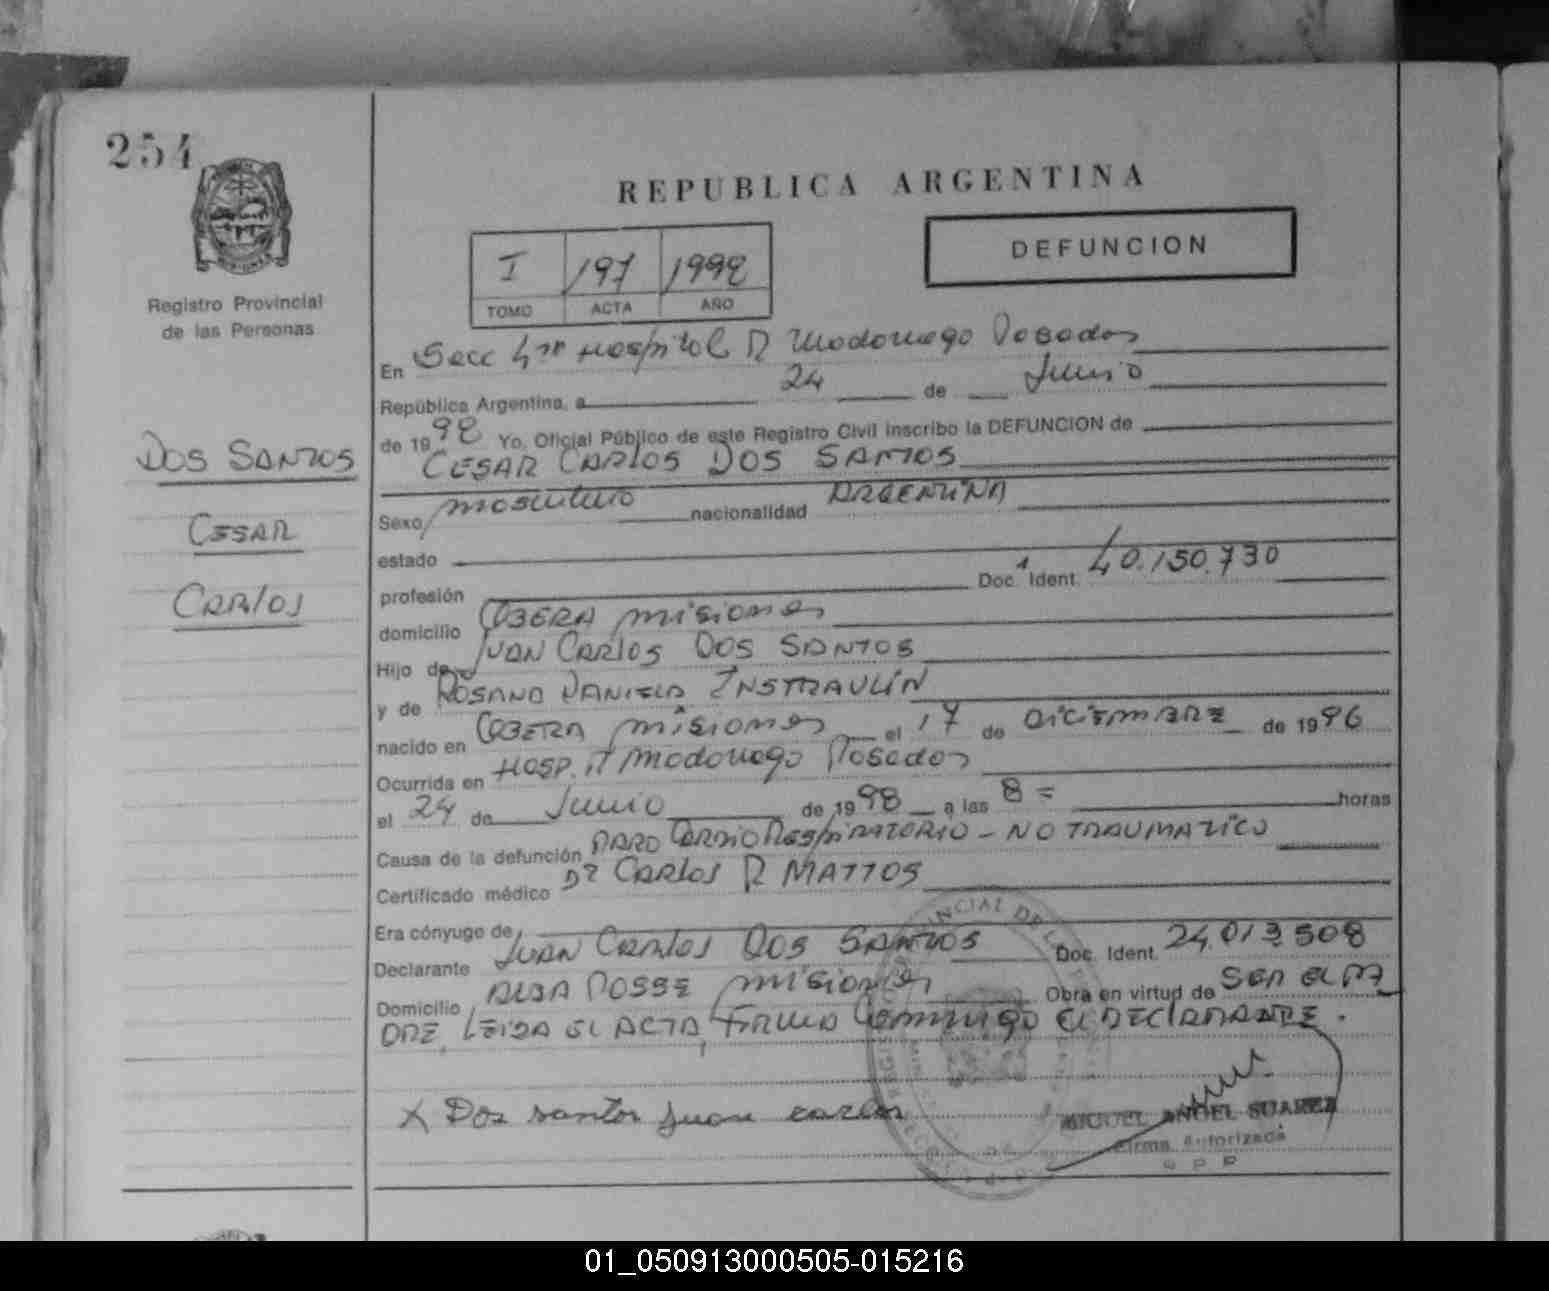 254
Registro Provincial
de las Personas
REPUBLICA ARGENTINA
DEFUNCION
I 197 1998
TOMO ACTA AÑO
En Secc 4ta Hospital R Madariaga Posadas
República Argentina, a 24 de Junio
de 1998 Yo, Oficial Público de este Registro Civil inscribo la DEFUNCION de
CESAR CARLOS DOS SANTOS
DOS SANTOS
CESAR
CARLOS
Sexo masculino nacionalidad ARGENTINA
estado
profesión Doc. Ident. 40.150.730
domicilio OBERA misiones
Hijo de JUAN CARLOS DOS SANTOS
y de ROSANA DANIELA
nacido en OBERA misiones el 17 de DICIEMBRE de 1996
Ocurrida en HOSP. R Madariaga Posadas
el 24 de Junio de 1998 a las 8= horas
Causa de la defunción PARO CARDIO RESPIRATORIO - NO TRAUMATICO
Certificado médico DR CARLOS R MATTOS
Era cónyuge de
Declarante JUAN CARLOS DOS SANTOS Doc. Ident. 24.013.508
Domicilio ALBA POSSE misiones Obra en virtud de SER EL PA
DRE, LEIDA EL ACTA, FIRMA Conmigo EL DECLARANTE.
X Dos santos juan carlos
MIGUEL ANGEL SUAREZ
Firma Autorizada
R P P
01_050913000505-015216